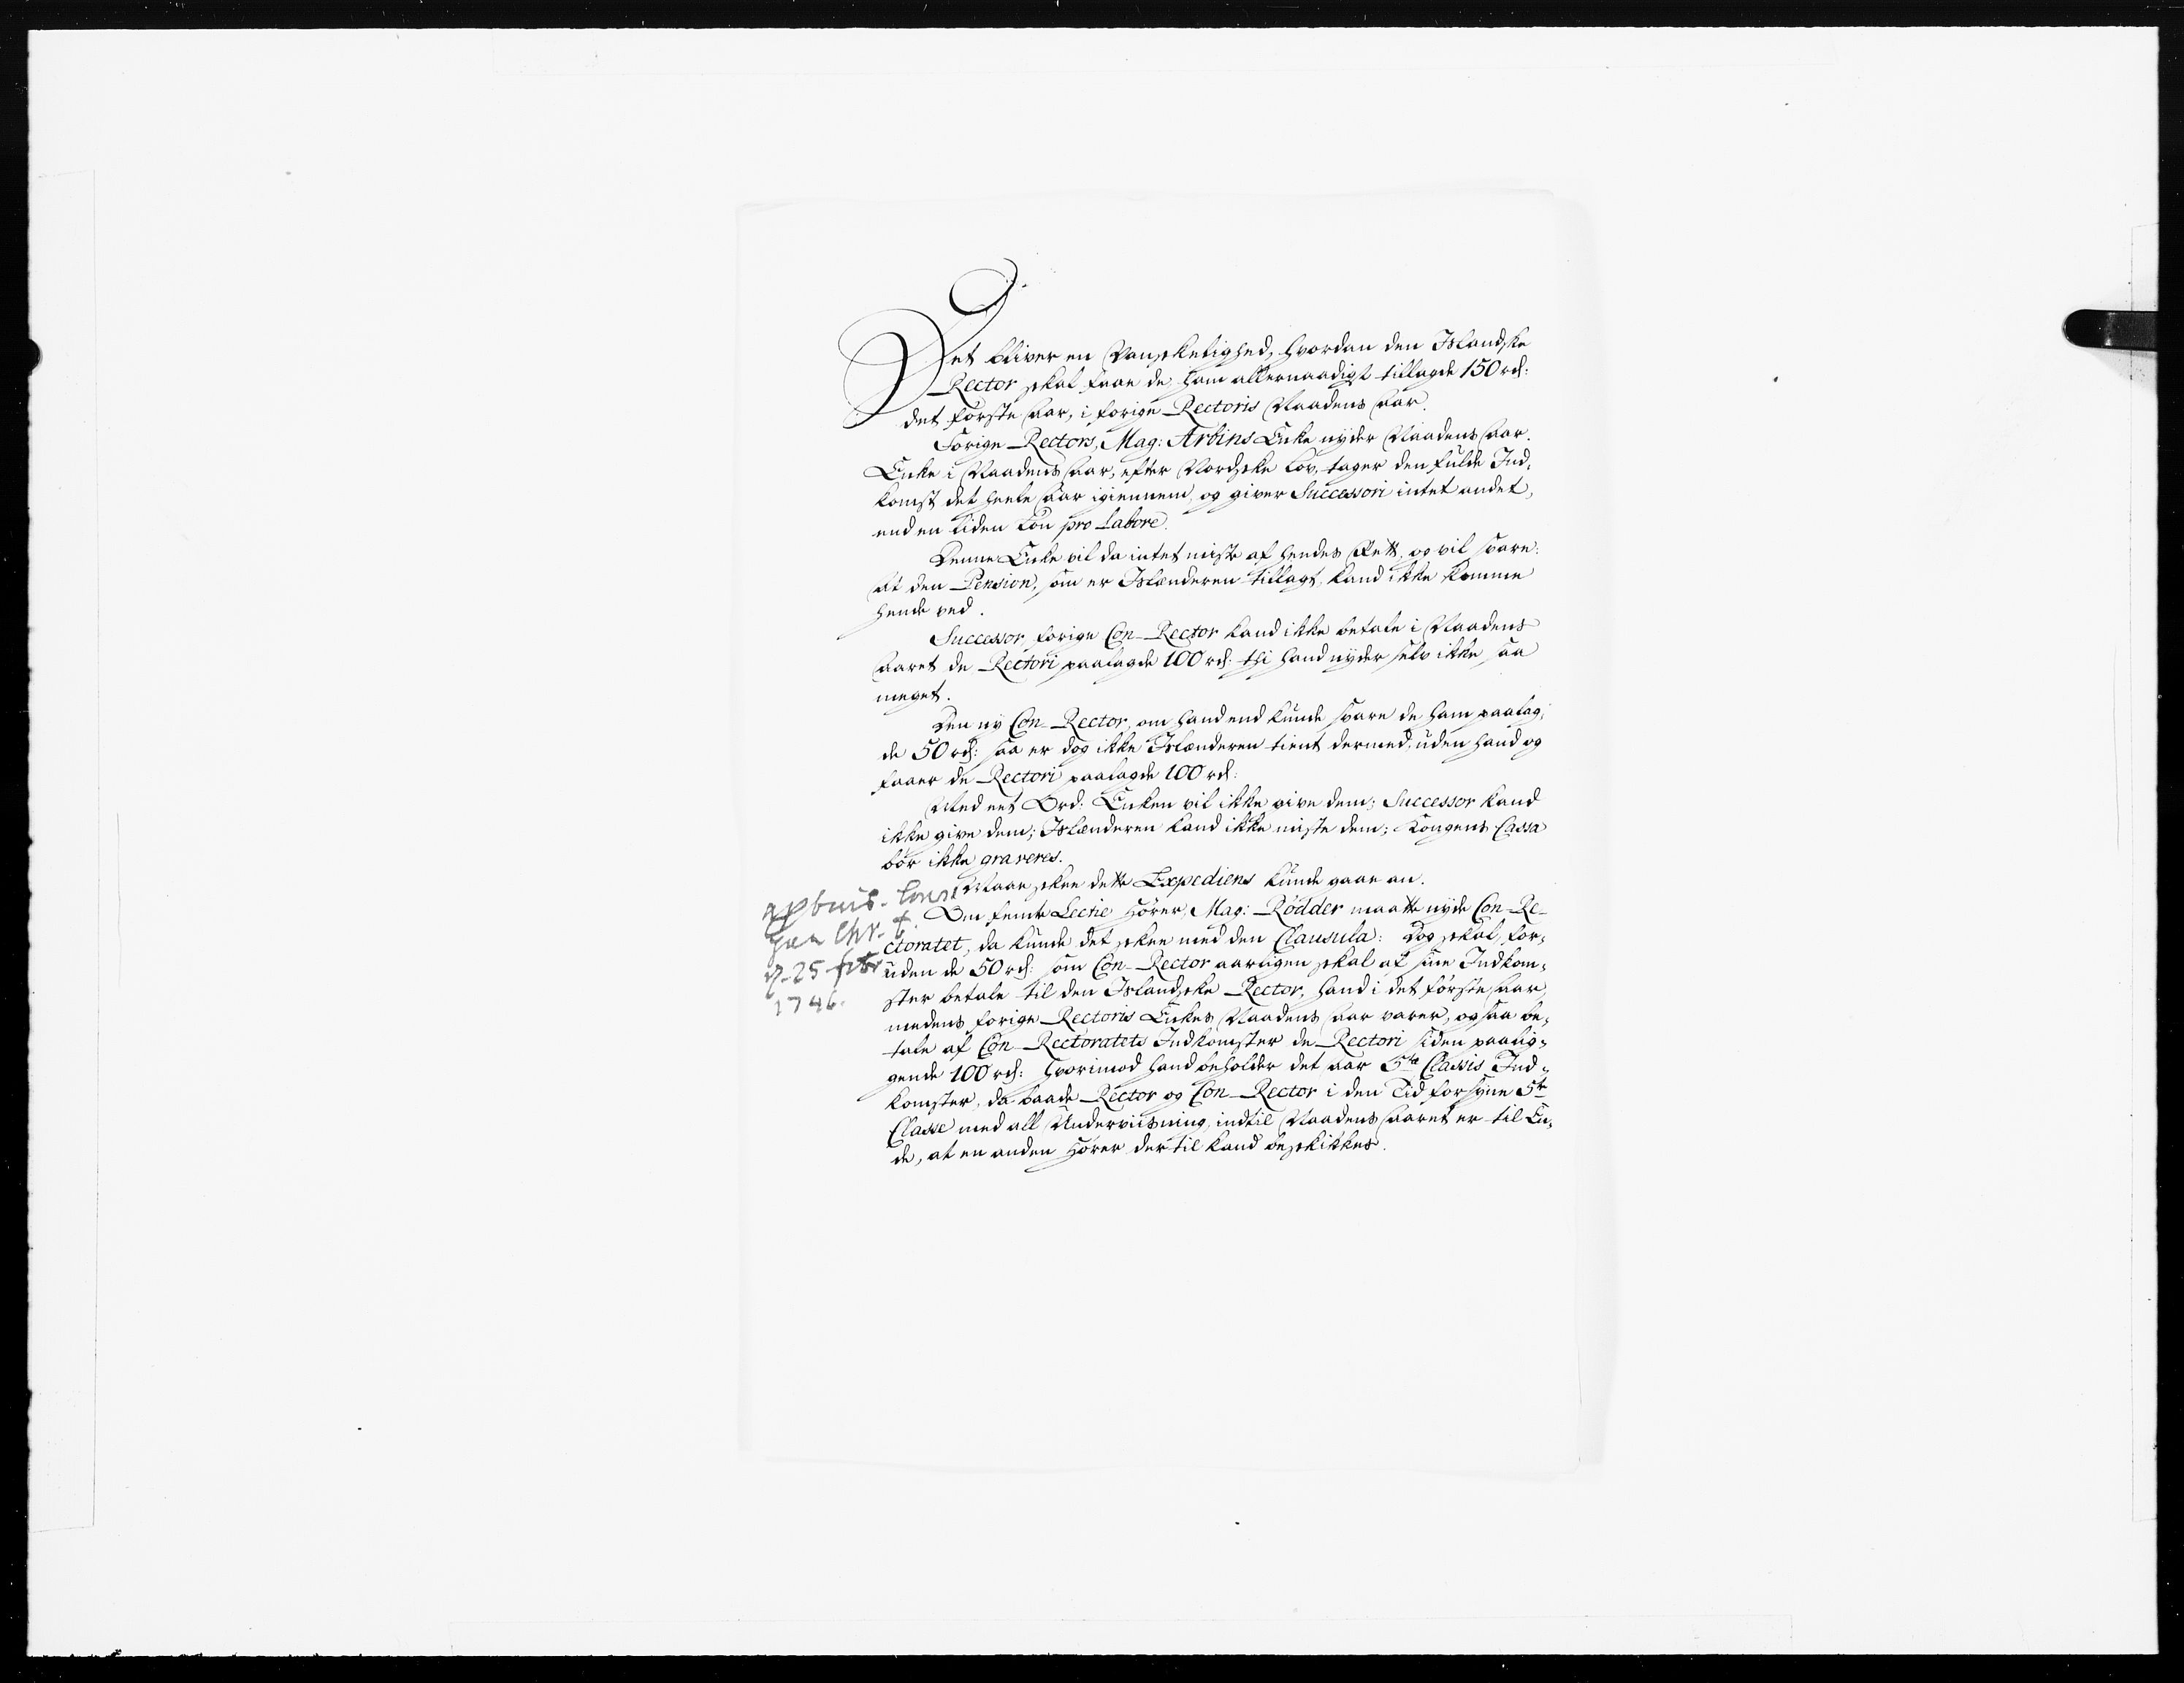 Det bliver en Vanskelighed, hvordan den Islandske
Rector skal faae de ham allernaadigst tillagde 150 rd:
det første Aar, i forige Rectoris Naadens Aar.
Forige Rectors, Mag: Arbins Enke nyder Naadens Aar.
Enke i Naadens Aar, efter Nordske Lov, tager den fulde Ind-
komst det heele Aar igiennem, og giver Successori intet andet,
end en liden Lön pro labore.
Denne Enke vil da intet miste af hendes Rett, og vil svare:
At den Pension, som er Islænderen tillagt, kand ikke komme
hende ved.
Successor, forige Con-Rector kand ikke betale i Naadens
Aaret de Rectori paalagde 100 rd: thi hand nyder selv ikke saa
meget.
Den ny Con-Rector, om hand end kunde svare de ham paalag-
de 50 rd: saa er dog ikke Islænderen tient dermed, uden hand og
faaer de Rectori paalagde 100 rd:
Med eet Ord: Enken vil ikke give dem; Successor kand
ikke give dem; Islænderen kand ikke miste dem; Kongens Cassa
bör ikke graveres.
Maaskee dette Expediens kunde gaae an.
Om femte Lectie Hörer, Mag: Rödder maatte nyde Con-Re-
ctoratet, da kunde det skee med den Clausula: Dog skal, for-
uden de 50 rd: som Con-Rector aarligen skal af sine Indkom-
ster betale til den Islandske Rector, hand i det første Aar,
medens forige Rectoris Enkes Naadens Aar varer, ogsaa be-
tale af Con-Rectoratets Indkomster de Rectori siden paalig-
gende 100 rd: hvorimod hand beholder det Aar 5te Classis Ind-
komster, da baade Rector og Con-Rector i den Tid forsyne 5te
Classe med all Underviisning, indtil Naadens Aaret er til En-
de, at en anden Hörer dertil kand beskikkes.
d. 25 febr
1746.